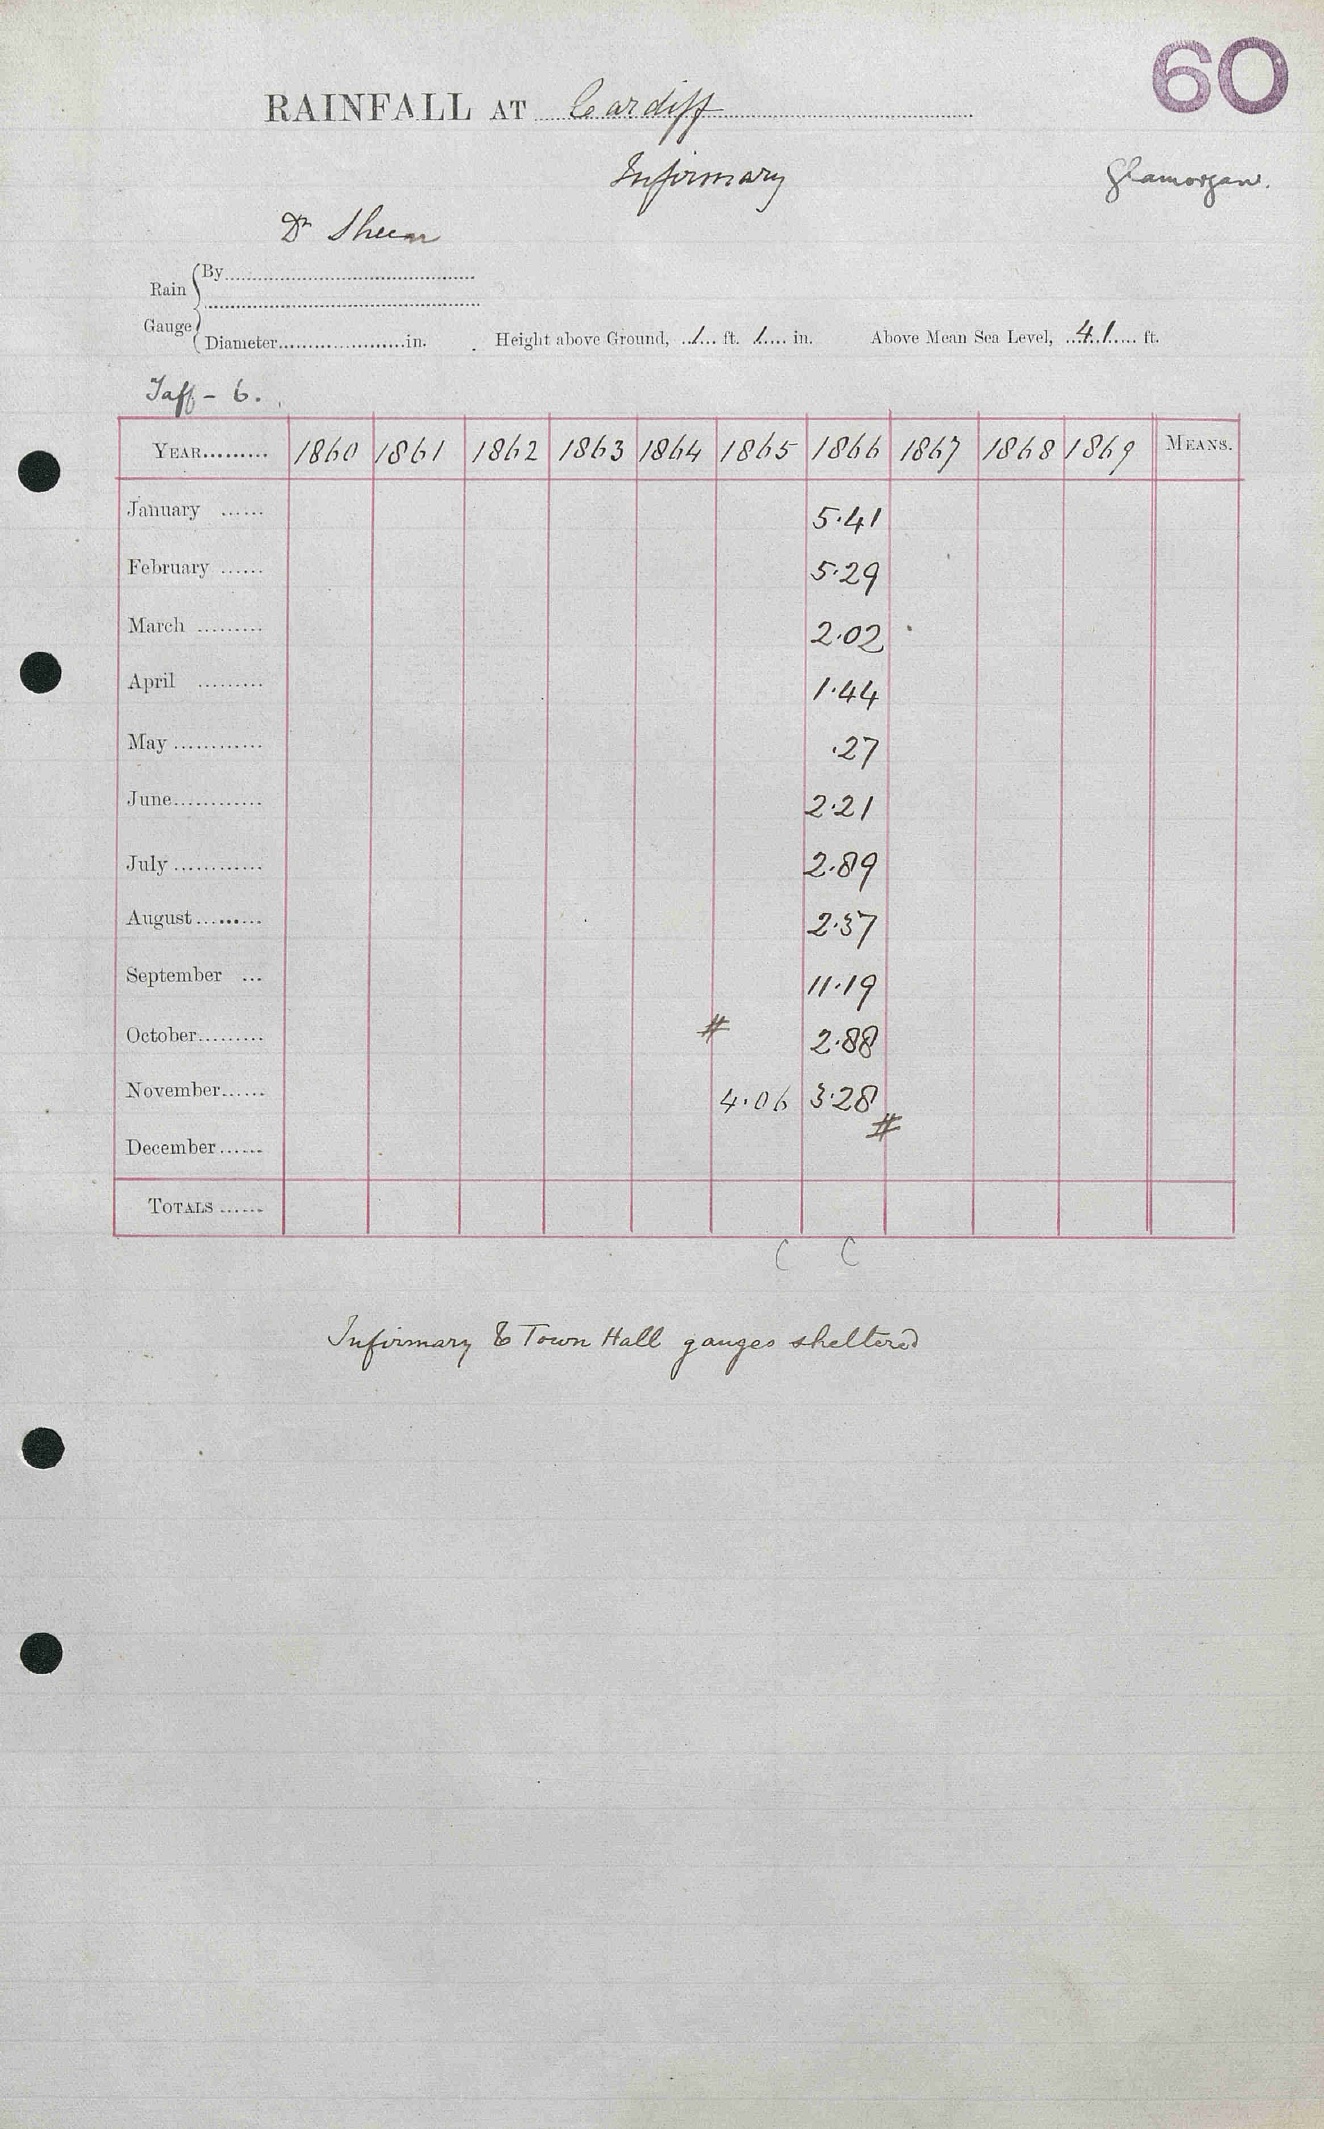 60
RAINFALL AT Cardiff
Infirmary
Glamorgan.
Dr
Rain Gauge
By
Diameter in. Height above Ground, 1 ft. 1 in. Above Mean Sea Level, 41 ft.
Taff - 6.
YEAR 1860 1861 1862 1863 1864 1865 1866 1867 1868 1869 MEANS.
January 5.41
February 5.29
March 2.02
April 1.44
May .27
June 2.21
July 2.89
August 2.37
September 11.19
October # 2.88
November 4.06 3.28
December #
TOTALS
C C
Infirmary & Town Hall gauges sheltered